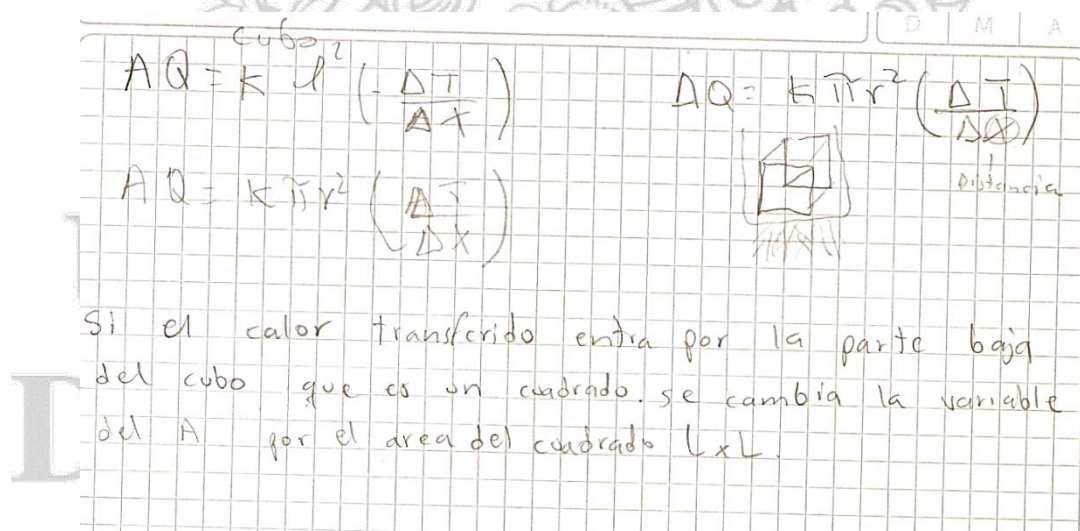 D M A
cubo
ΔQ = k l² (- ΔT / ΔX)
ΔQ = k π r² (ΔT / ΔX)
Distancia
ΔQ = k π r² (ΔT / ΔX)
Si el calor transferido entra por la parte baja
del cubo que es un cuadrado. se cambia la variable
del A por el area del cuadrado LxL.